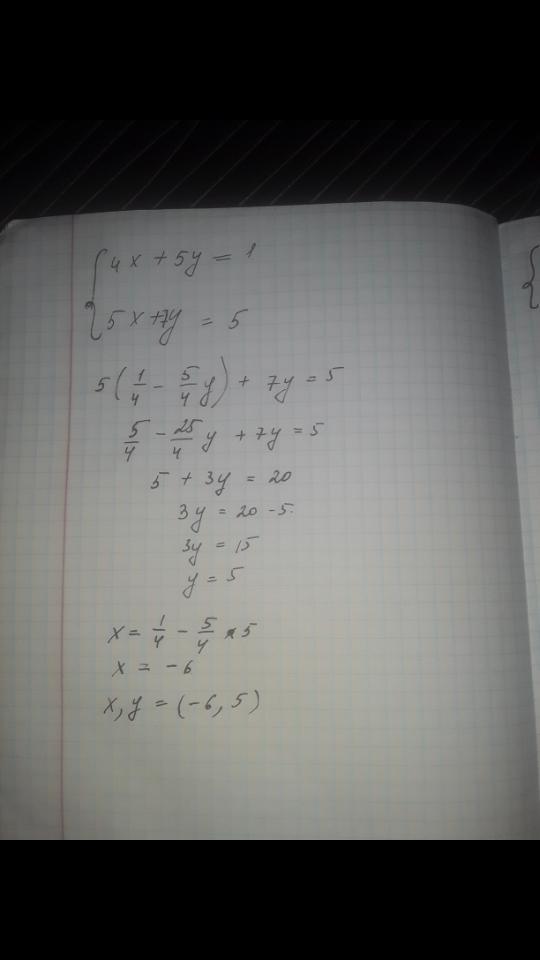 { 4x + 5y = 1
5x + 7y = 5
5(1/4 - 5/4 y) + 7y = 5
5/4 - 25/4 y + 7y = 5
5 + 3y = 20
3y = 20 - 5
3y = 15
y = 5
x = 1/4 - 5/4 * 5
x = -6
x, y = (-6, 5)
{